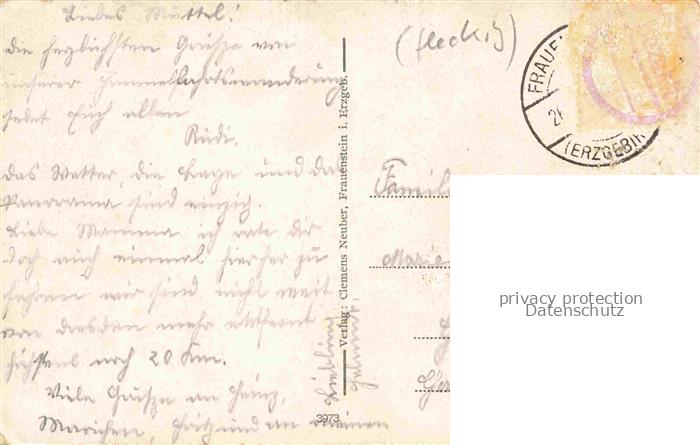 Liebes Muttel!
die herzlichsten Grüße von
unserer Himmelfahrtswanderung
sedet Euch allen
Rudi.
Das Wetter, die Lage und das
Panorama sind einzig.
Liebe Mamma ich rate dir
doch auch einmal hierher zu
fahren wir sind nicht weit
von dresden mehr entfernt
höchstens noch 20 Km.
Viele Grüße an Heinz,
Mariechen, Fritz und an meinen
Liebling
Verlag: Clemens Neuber, Frauenstein i. Erzgeb.
3973
(fleckig)
FRAUE
(ERZGEBIR
Famil
Marie
privacy protection
Datenschutz